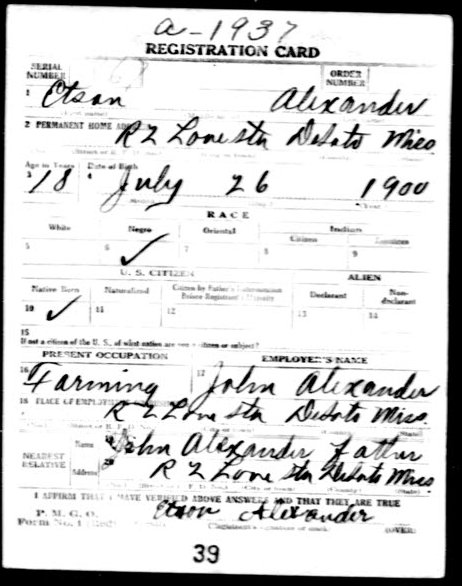 a-1937
REGISTRATION CARD
SERIAL NUMBER ORDER NUMBER
1 Etson Alexander
2 PERMANENT HOME
R 2 Lonestar DeSoto Miss
Age in Years Date of Birth
3 18 4 July 26 1900
RACE
White Negro Oriental Indian
Citizen
5 6 ✓ 7 8 9
U. S. CITIZEN ALIEN
Native Born Naturalized Citizen by Father's Naturalization Before Registrant's Majority Declarant Non-declarant
10 ✓ 11 12 13 14
15
If not a citizen of the U. S., of what nation are you a citizen or subject?
PRESENT OCCUPATION EMPLOYER'S NAME
16 Farming 17 John Alexander
18 PLACE OF
R 2 Lone Star DeSoto Miss.
NEAREST RELATIVE Name John Alexander Father
Address R 2 Lone Star DeSoto Miss
I AFFIRM THAT I HAVE VERIFIED ABOVE ANSWERS AND THAT THEY ARE TRUE
P. M. G. O.
Form No. 1 Etson Alexander
(OVER)
39